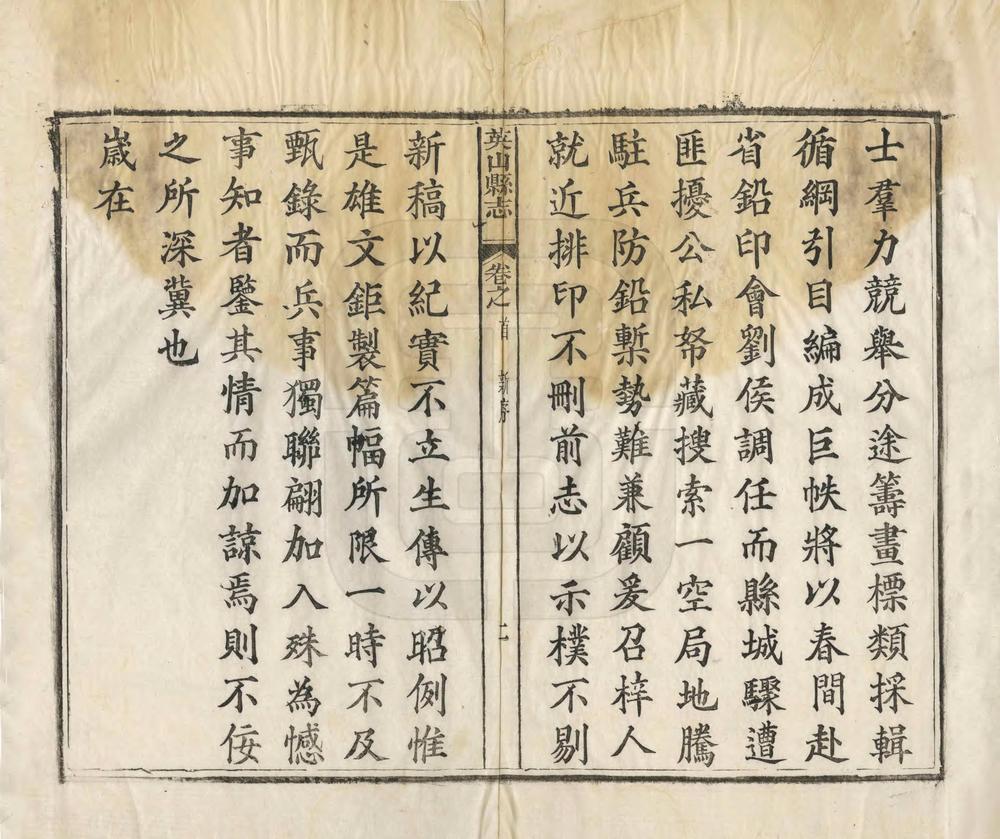 士羣力競舉分途籌畫標類採輯
循綱引目編成巨帙將以春間赴
省鉛印會劉侯調任而縣城驟遭
匪擾公私帑藏搜索一空局地騰
駐兵防鉛槧勢難兼顧爰召梓人
就近排印不刪前志以示樸不剔
英山縣志 卷之首 新序 二
新稿以紀實不立生傳以昭例惟
是雄文鉅製篇幅所限一時不及
甄錄而兵事獨聯翩加入殊為憾
事知者鑒其情而加諒焉則不佞
之所深冀也
嵗在